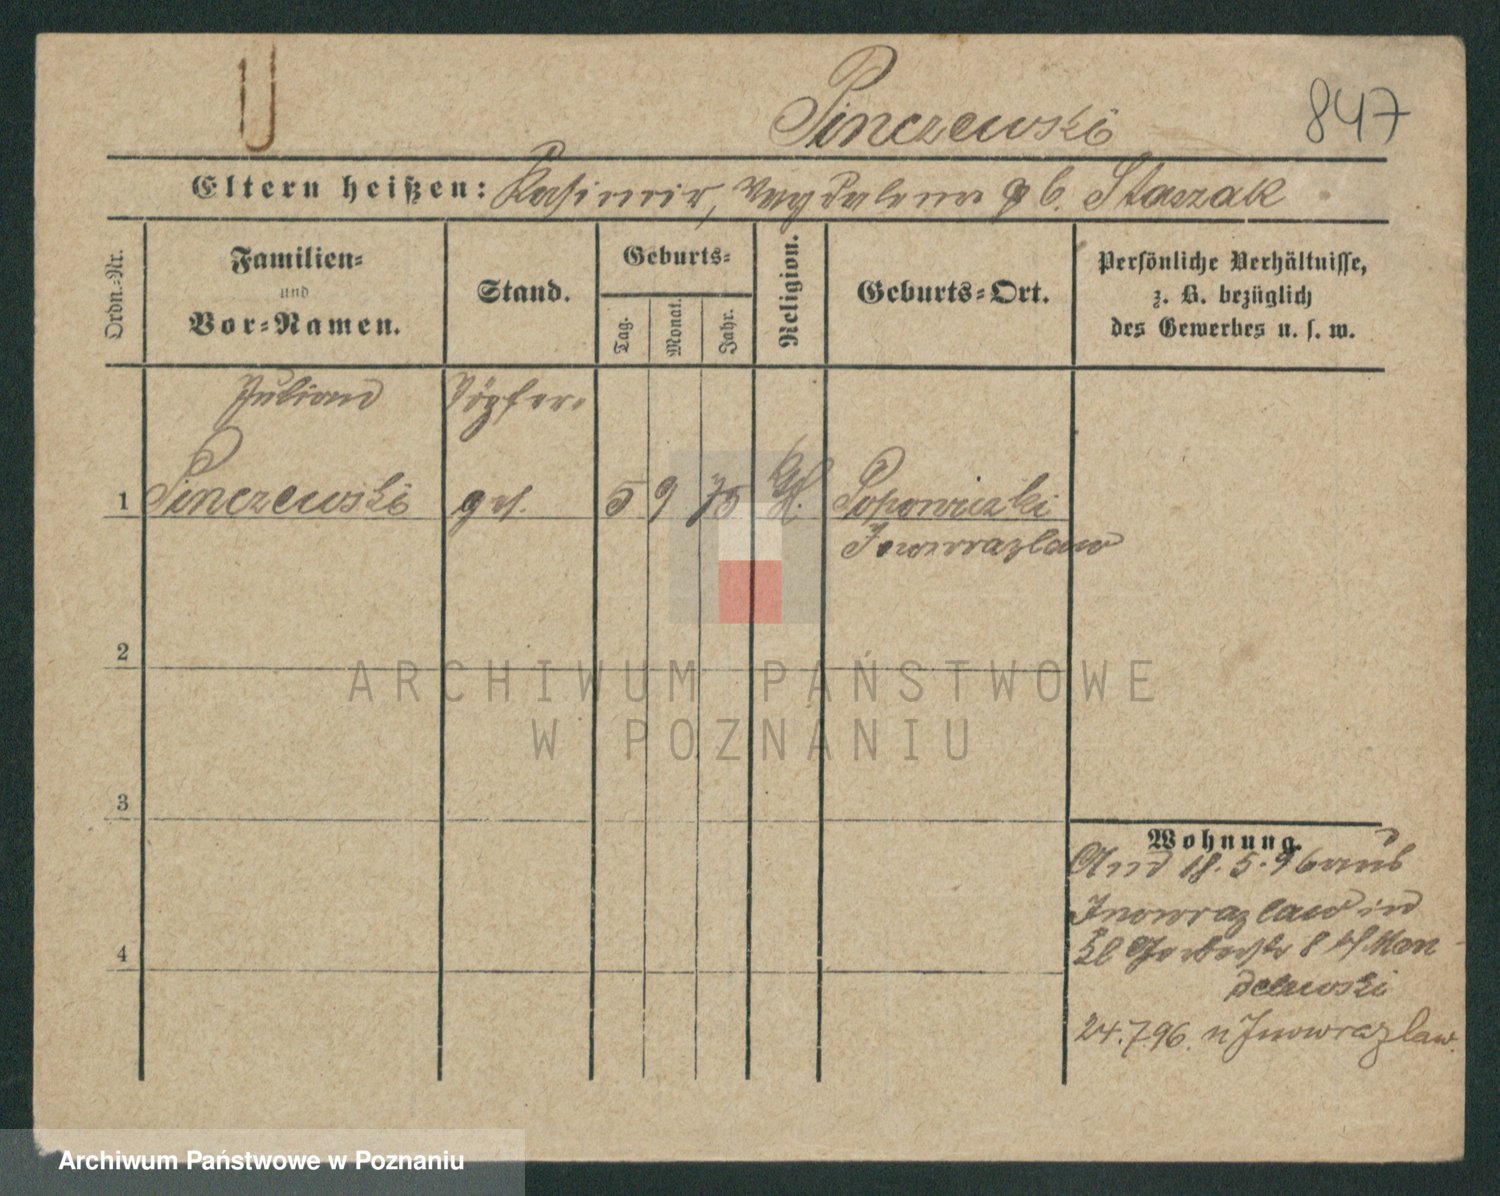 Pinczewski
847
Eltern heißen: Kasimir, Magdalena gb. Staszak
Ordn.-Nr.
Familien- und Vor-Namen.
Stand.
Geburts-
Tag.
Monat.
Jahr.
Religion.
Geburts-Ort.
Persönliche Verhältnisse,
z. B. bezüglich
des Gewerbes u. s. w.
Julian Töpfer
1 Pinczewski ges. 5 9 75 Popowiczki
Inowrazlaw
2
3
4
Wohnung.
18.5.96 aus
Inowrazlaw in
Kl Gerberstr 8 b/
24.7.96. n Inowrazlaw.
ARCHIWUM PAŃSTWOWE
W POZNANIU
Archiwum Państwowe w Poznaniu